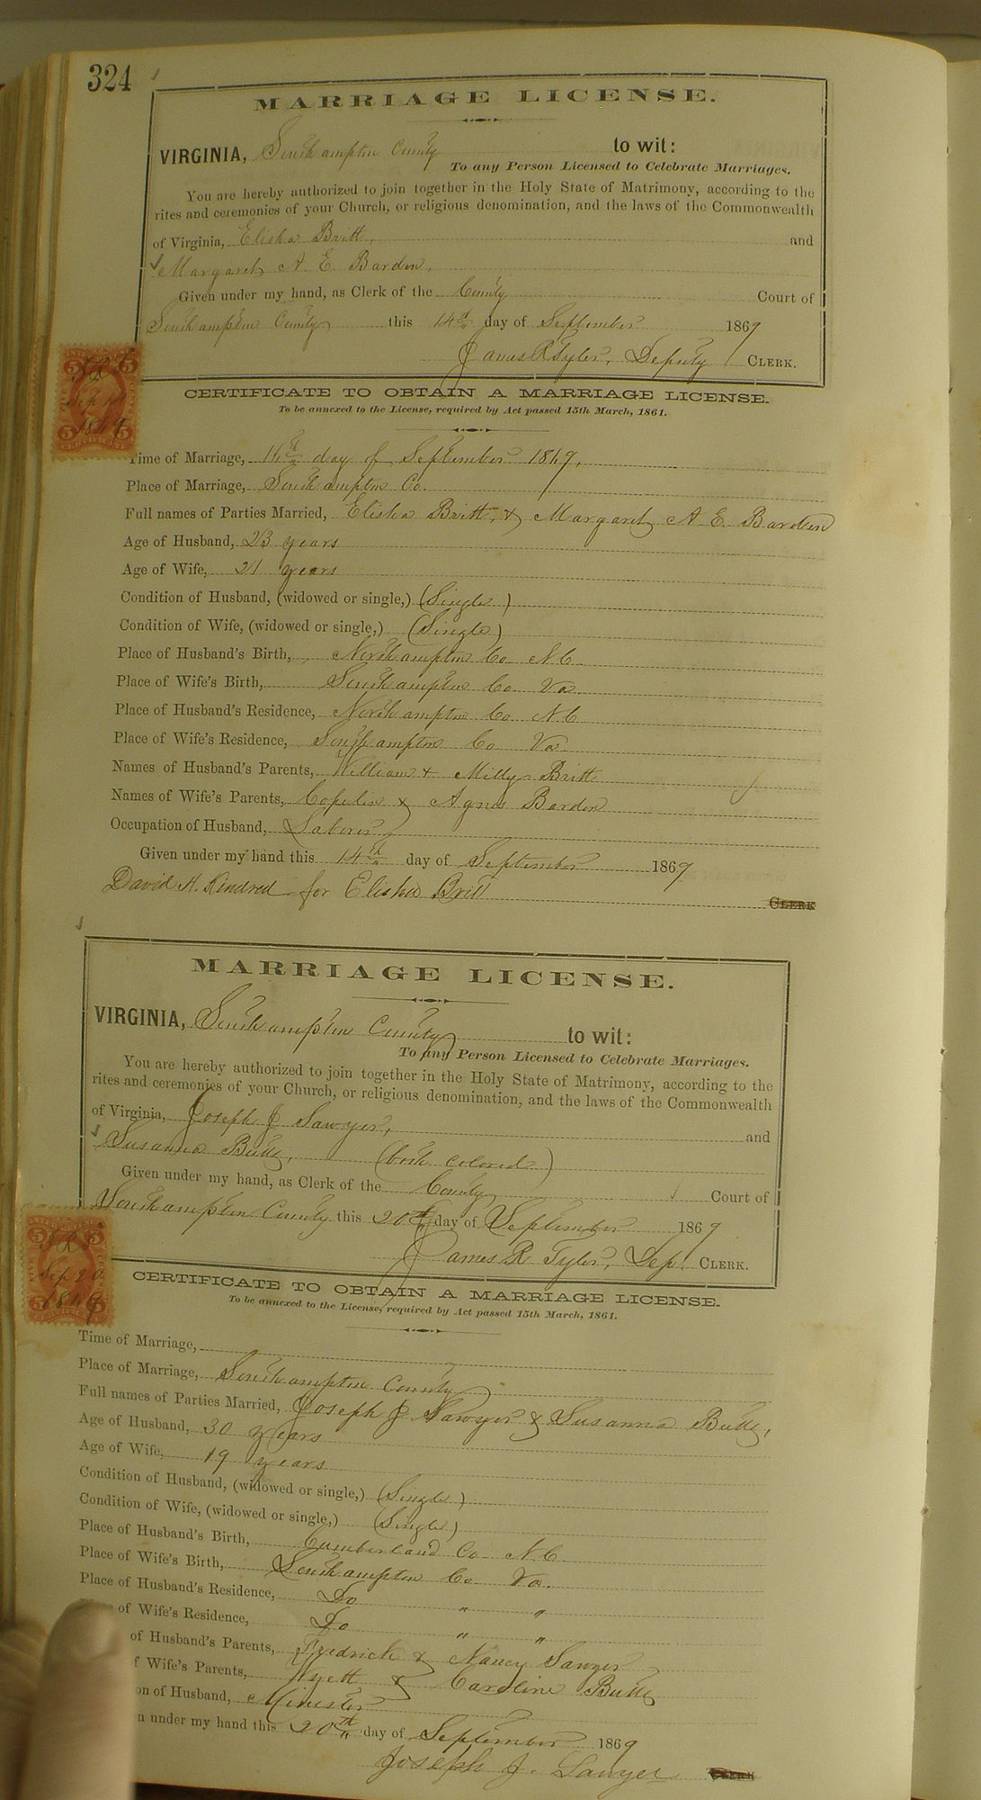 324
MARRIAGE LICENSE.
VIRGINIA, Southampton County to wit:
To any Person Licensed to Celebrate Marriages.
You are hereby authorized to join together in the Holy State of Matrimony, according to the
rites and ceremonies of your Church, or religious denomination, and the laws of the Commonwealth
of Virginia, Elisha Britt, and
Margaret A. E. Barden,
Given under my hand, as Clerk of the County Court of
Southampton County this 14th day of September 1869
James R Tyler, Deputy CLERK.
CERTIFICATE TO OBTAIN A MARRIAGE LICENSE.
To be annexed to the License, required by Act passed 15th March, 1861.
Time of Marriage, day of September 1869,
Place of Marriage, Southampton Co.
Full names of Parties Married, Elisha Britt, & Margaret A. E. Barden
Age of Husband, 23 years
Age of Wife, 21 years
Condition of Husband, (widowed or single,) (Single)
Condition of Wife, (widowed or single,) (Single)
Place of Husband's Birth, Northampton Co N.C.
Place of Wife's Birth, Southampton Co Va.
Place of Husband's Residence, Northampton Co N.C
Place of Wife's Residence, Southampton Co Va
Names of Husband's Parents, William & Milly Britt
Names of Wife's Parents, Copelin & Agnes Barden
Occupation of Husband, Laborer
Given under my hand this 14th day of September 1869
David H. Kindred for Elisha Britt CLERK
MARRIAGE LICENSE.
VIRGINIA, Southampton County to wit:
To any Person Licensed to Celebrate Marriages.
You are hereby authorized to join together in the Holy State of Matrimony, according to the
rites and ceremonies of your Church, or religious denomination, and the laws of the Commonwealth
of Virginia, Joseph J Sawyer, and
Susanna Butts, (both colored)
Given under my hand, as Clerk of the County Court of
Southampton County this 20th day of September 1869
James R Tyler, Dep. CLERK.
Sep 20
1869
CERTIFICATE TO OBTAIN A MARRIAGE LICENSE.
To be annexed to the License, required by Act passed 15th March, 1861.
Time of Marriage,
Place of Marriage, Southampton County
Full names of Parties Married, Joseph J Sawyer & Susanna Butts,
Age of Husband, 30 years
Age of Wife, 19 years
Condition of Husband, (widowed or single,) (Single)
Condition of Wife, (widowed or single,) (Single)
Place of Husband's Birth, Cumberland Co N.C
Place of Wife's Birth, Southampton Co Va.
Place of Husband's Residence, Do " "
of Wife's Residence, Do " "
of Husband's Parents, Fredrick & Nancy Sawyer
f Wife's Parents, Wyett & Caroline Butts
on of Husband, Minister
n under my hand this 20th day of September 1869
Joseph J. Sawyer CLERK